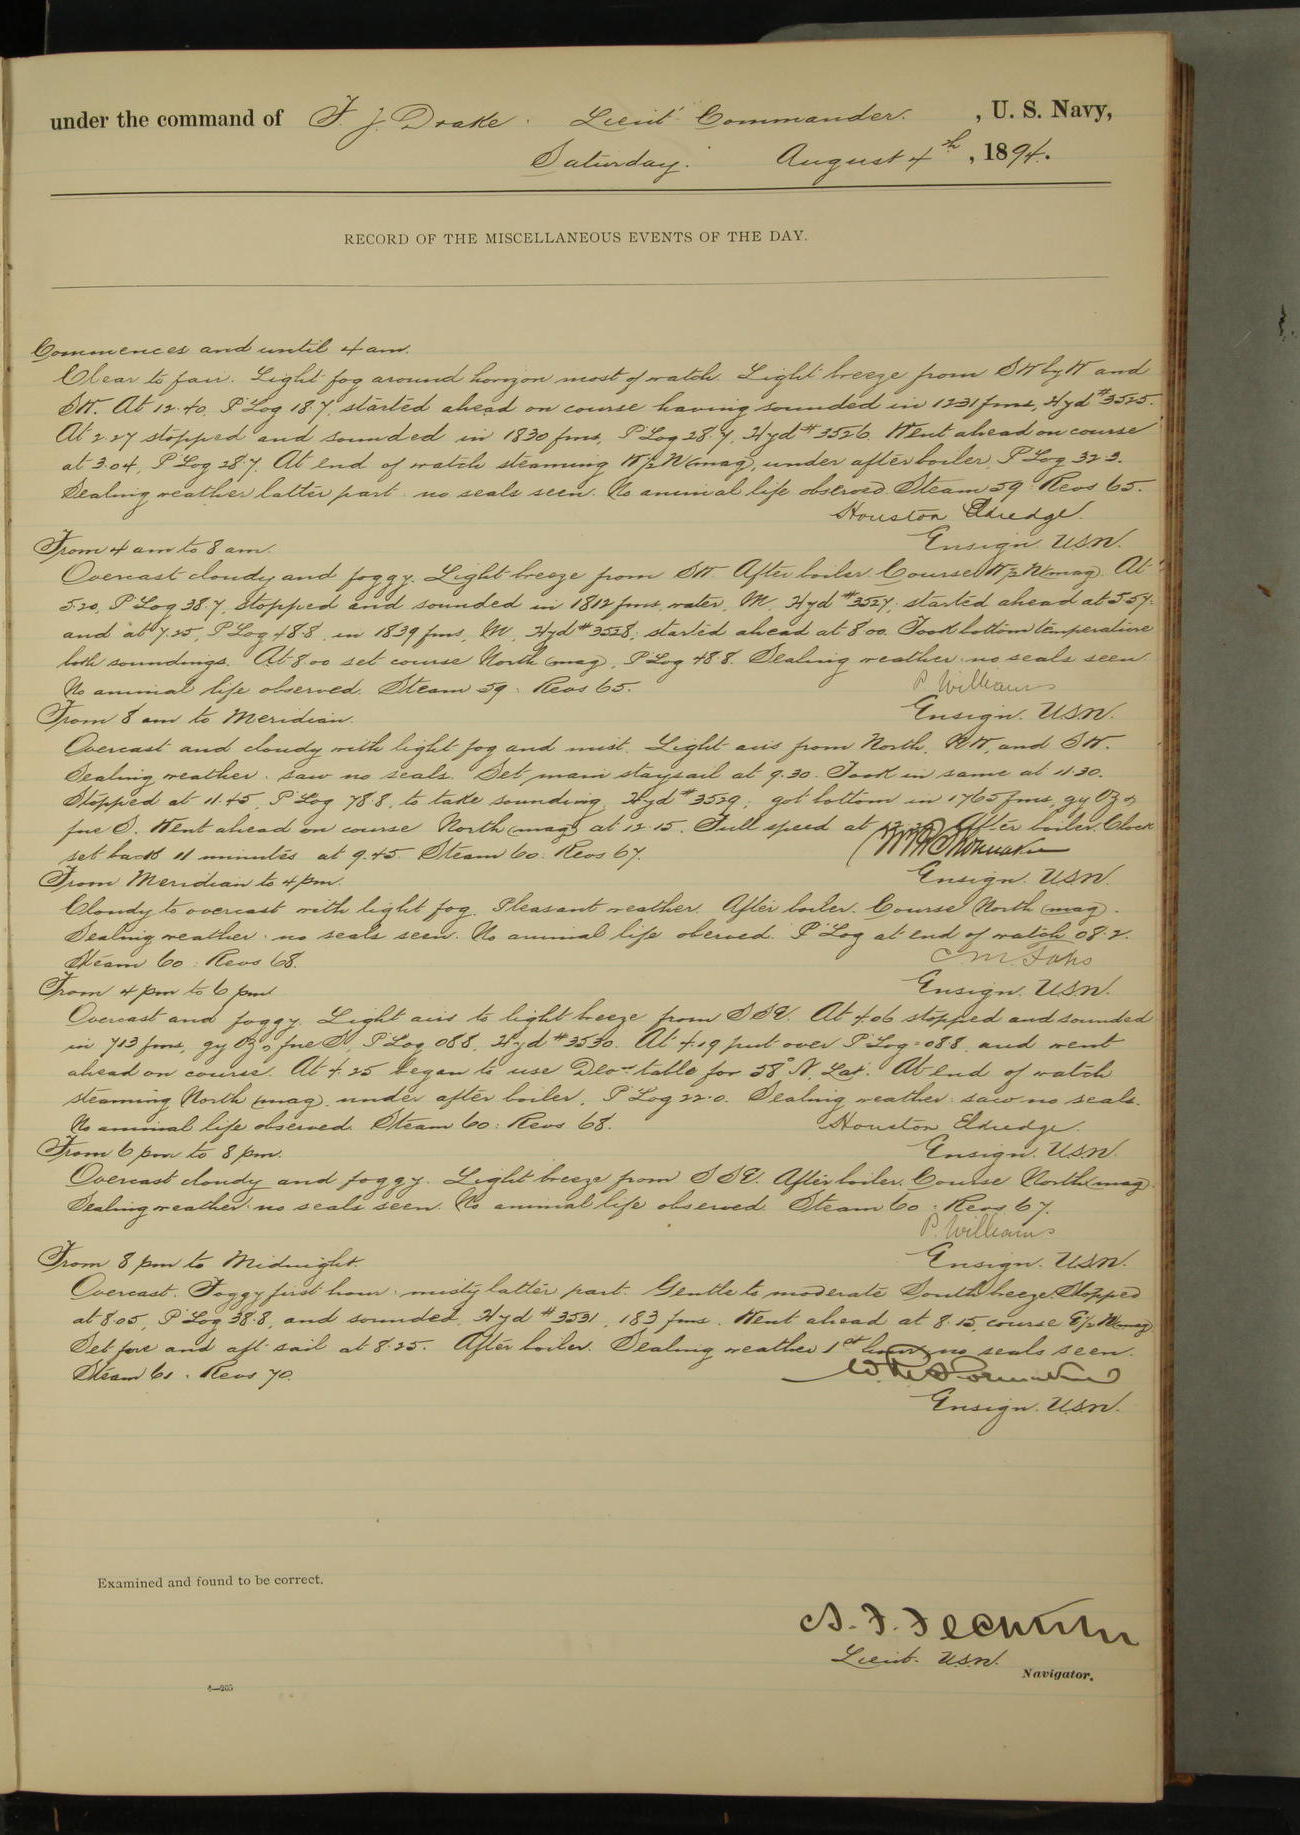 under the command of F. J. Drake. Lieut. Commander. , U. S. Navy,
Saturday. August 4th , 1894.
RECORD OF THE MISCELLANEOUS EVENTS OF THE DAY.
Commences and until 4 am.
Clear to fair. Light fog around horizon most of watch. Light breeze from SW by W and
SW. At 12.40, P Log 18.7, started ahead on course having sounded in 1231 fms, Hyd #3525.
At 2.27 stopped and sounded in 1830 fms, P Log 28.7, Hyd #3526. Went ahead on course
at 3.04, P Log 28.7. At end of watch steaming W½N (mag), under after boiler, P Log 32.3.
Sealing weather latter part no seals seen. No animal life observed. Steam 59 : Revs 65.
Houston Eldredge.
From 4 am to 8 am. Ensign. U.S.N.
Overcast cloudy and foggy. Light breeze from SW. After boiler. Course W½N (mag). At
5.20, P Log 38.7, stopped and sounded in 1812 fms, water, M, Hyd #3527; started ahead at 5.57:
and at 7.25, P Log 48.8, in 1839 fms, M, Hyd #3528; started ahead at 8.00. Took bottom temperature
both soundings. At 8.00 set course North (mag), P Log 48.8. Sealing weather: no seals seen.
No animal life observed. Steam 59 : Revs 65. P. Williams
From 8 am to Meridian. Ensign. U.S.N.
Overcast and cloudy with light fog and mist. Light airs from North, NW, and SW.
Sealing weather. saw no seals. Set main staysail at 9.30. Took in same at 11.30.
Stopped at 11.45, P Log 78.8, to take sounding, Hyd #3529; got bottom in 1765 fms, gy Oz &
fne S. Went ahead on course North (mag) at 12.15. Full speed at After boiler. Clock
set back 11 minutes at 9.45. Steam 60 : Revs 67.
From Meridian to 4 pm. Ensign. U.S.N.
Cloudy to overcast with light fog. Pleasant weather. After boiler. Course North (mag).
Sealing weather: no seals seen. No animal life oberved. P Log at end of watch 08.2.
Steam 60 : Revs 68. C. M. Fahs
From 4 pm to 6 pm Ensign. U.S.N.
Overcast and foggy. Light airs to light breeze from SSE. At 4.06 stopped and sounded
in 713 fms, gy Oz, fne S, P Log 088, Hyd #3530. At 4.19 put over P Log = 088 and went
ahead on course. At 4.25 began to use Dev. table for 58° N. Lat. At end of watch
steaming North (mag), under after boiler, P Log 22.0. Sealing weather: saw no seals.
No animal life observed. Steam 60 : Revs 68. Houston Eldredge.
From 6 pm to 8 pm. Ensign. U.S.N.
Overcast cloudy and foggy. Light breeze from SSE. After boiler. Course North (mag).
Sealing weather: no seals seen. No animal life observed. Steam 60 : Revs 67.
P. Williams
From 8 pm to Midnight. Ensign. U.S.N.
Overcast. Foggy first hour: misty latter part. Gentle to moderate South breeze. Stopped
at 8.05, P Log 38.8, and sounded, Hyd #3531, 183 fms. Went ahead at 8.15, course (mag)
Set fore and aft sail at 8.25. After boiler. Sealing weather 1st hour, no seals seen.
Steam 61. Revs 70.
Ensign. U.S.N.
Examined and found to be correct.
A. F. Fechteler
Lieut. U.S.N.
Navigator.
6—205